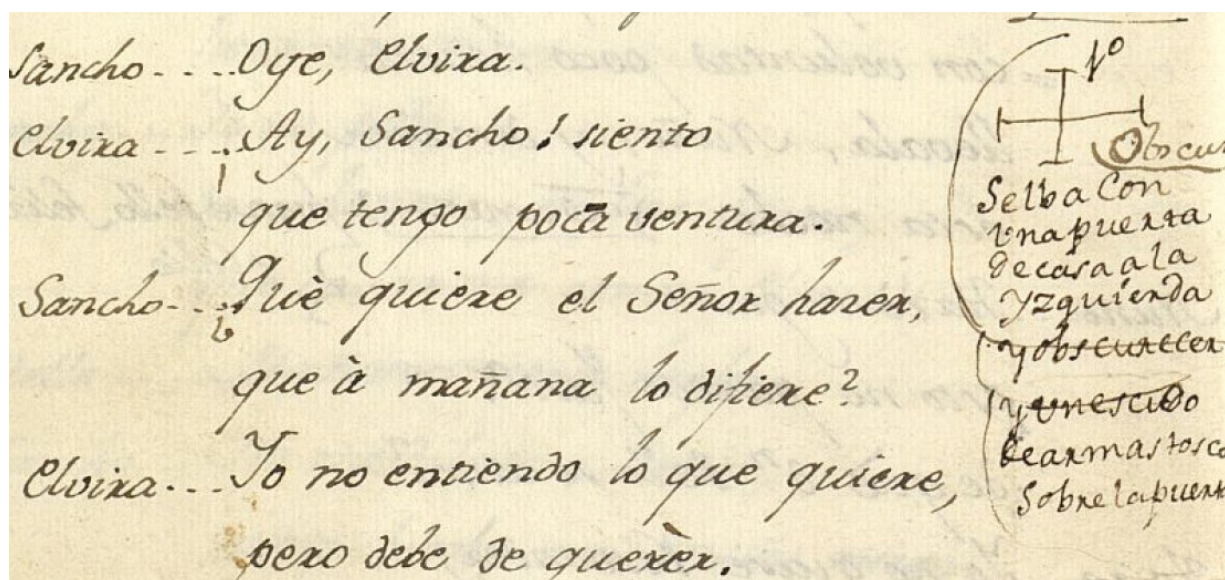 Sancho - - - Oye, Elvira.
Elvira - - - Ay, Sancho! siento
que tengo poca ventura.
Sancho - - - Què quiere el Señor hazer,
que à mañana lo difiere?
Elvira - - - Yo no entiendo lo que quiere,
pero debe de querèr.
1º
Obscur
Selba con
Una puerta
de casa a la
Yzquierda
y obscurecer
y un escudo
de armas tosco
sobre la puert